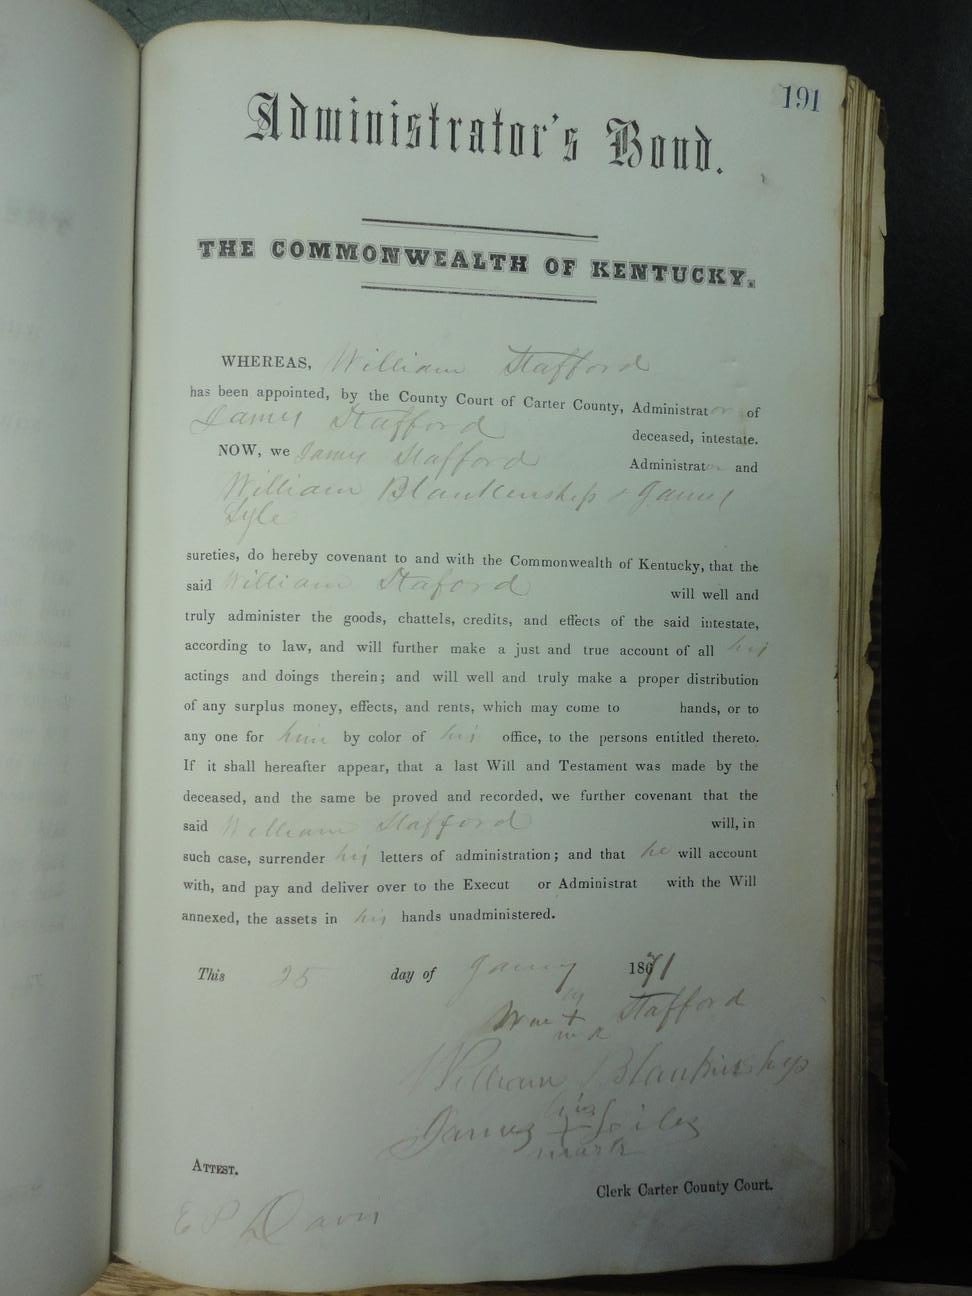 191
Administrator's Bond.
THE COMMONWEALTH OF KENTUCKY.
WHEREAS, William Stafford
has been appointed, by the County Court of Carter County, Administrator of
James Stafford deceased, intestate.
NOW, we James Stafford Administrator and
William Blankenship & James
Lyle
sureties, do hereby covenant to and with the Commonwealth of Kentucky, that the
said William Staford will well and
truly administer the goods, chattels, credits, and effects of the said intestate,
according to law, and will further make a just and true account of all his
actings and doings therein; and will well and truly make a proper distribution
of any surplus money, effects, and rents, which may come to hands, or to
any one for him by color of his office, to the persons entitled thereto.
If it shall hereafter appear, that a last Will and Testament was made by the
deceased, and the same be proved and recorded, we further covenant that the
said William Stafford will, in
such case, surrender his letters of administration; and that he will account
with, and pay and deliver over to the Execut or Administrat with the Will
annexed, the assets in his hands unadministered.
This 25 day of 1871
his
Wm + Stafford
William Blankinship
his
James +
mark
ATTEST.
Clerk Carter County Court.
E P Davis